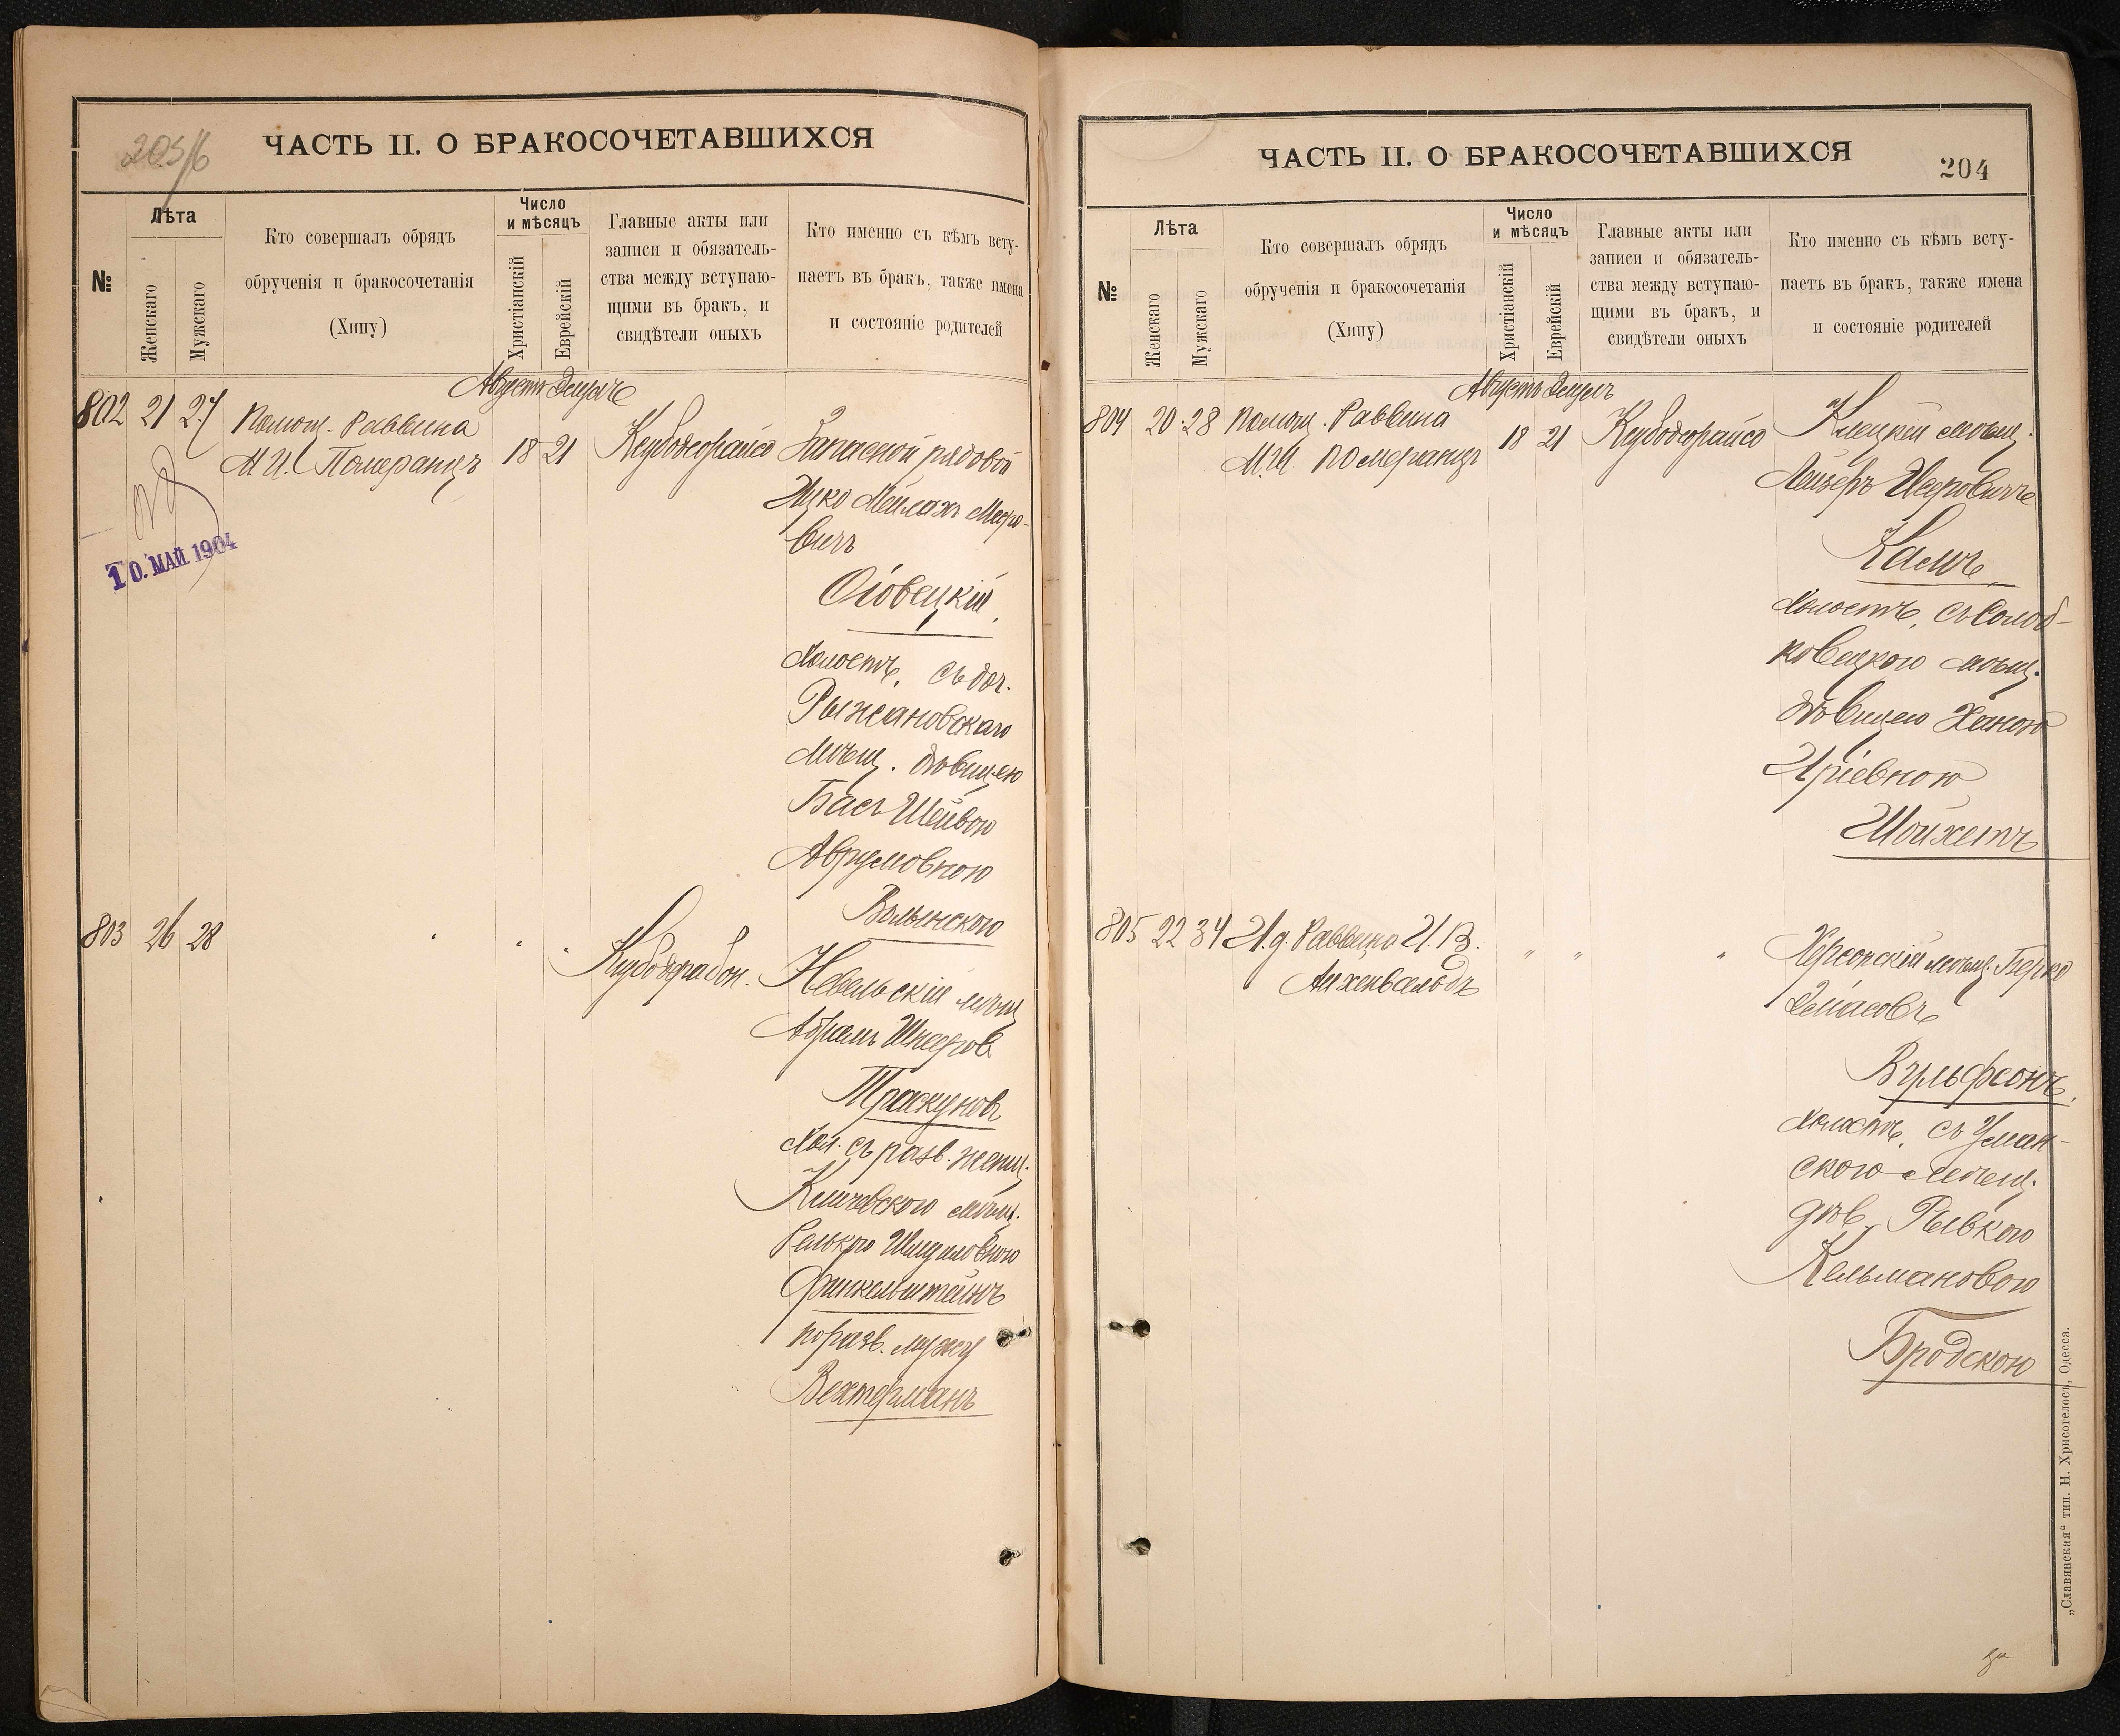 205/6
ЧАСТЬ II. О БРАКОСОЧЕТАВШИХСЯ
№
Лѣта
Женскаго
Мужскаго
Кто совершалъ обрядъ
обрученія и бракосочетанія
(Хипу)
Число
и мѣсяцъ
Христіанскій
Еврейскій
Главные акты или
записи и обязатель-
ства между вступаю-
щими въ бракъ, и
свидѣтели оныхъ
Кто именно съ кѣмъ всту-
паетъ въ бракъ, также имена
и состояніе родителей
Августъ Элулъ
802 21 27 Помощ. Раввина
М. И. Померанцъ
18 21
Запасной рядовой
Ицко Мейлахъ Меро-
вичъ
10. МАЙ. 1904
холостъ, съ доч.
Рыжановскаго
мѣщ. дѣвицею
Басъ Шейвою
Аврумовною
Волынского
803 26 28
Невельскій мѣщ
Абрамъ Шнеров
Траскуновъ
хол. съ разв. женщ.
мѣщ.
Шмулов­ною
Финкельштейнъ
по разв. мужу
Вехтерманъ
ЧАСТЬ II. О БРАКОСОЧЕТАВШИХСЯ
204
№
Лѣта
Женскаго
Мужскаго
Кто совершалъ обрядъ
обрученія и бракосочетанія
(Хипу)
Число
и мѣсяцъ
Христіанскій
Еврейскій
Главные акты или
записи и обязатель-
ства между вступаю-
щими въ бракъ, и
свидѣтели оныхъ
Кто именно съ кѣмъ всту-
паетъ въ бракъ, также имена
и состояніе родителей
Августъ Элулъ
804 20 28 Помощ. Раввина
М. И. Померанцъ
18 21
Клецкій мѣщ.
Лейзеръ Иеровичъ
Камъ,
холостъ, съ Солоб-
ковецкого мѣщ.
дѣвицею Ханою
Аріевною
Шойхетъ
805 22 34 И. д. Раввина И. В.
Айхенвальдъ
" " "
Херсонскій мѣщ. Берко
Вульфсонъ,
холостъ, съ Уман-
ского мѣщ.
дѣв. Рывкою
Кельмановою
Бродскою
„Славянская“ тип. Н. Хрисогелосъ, Одесса.